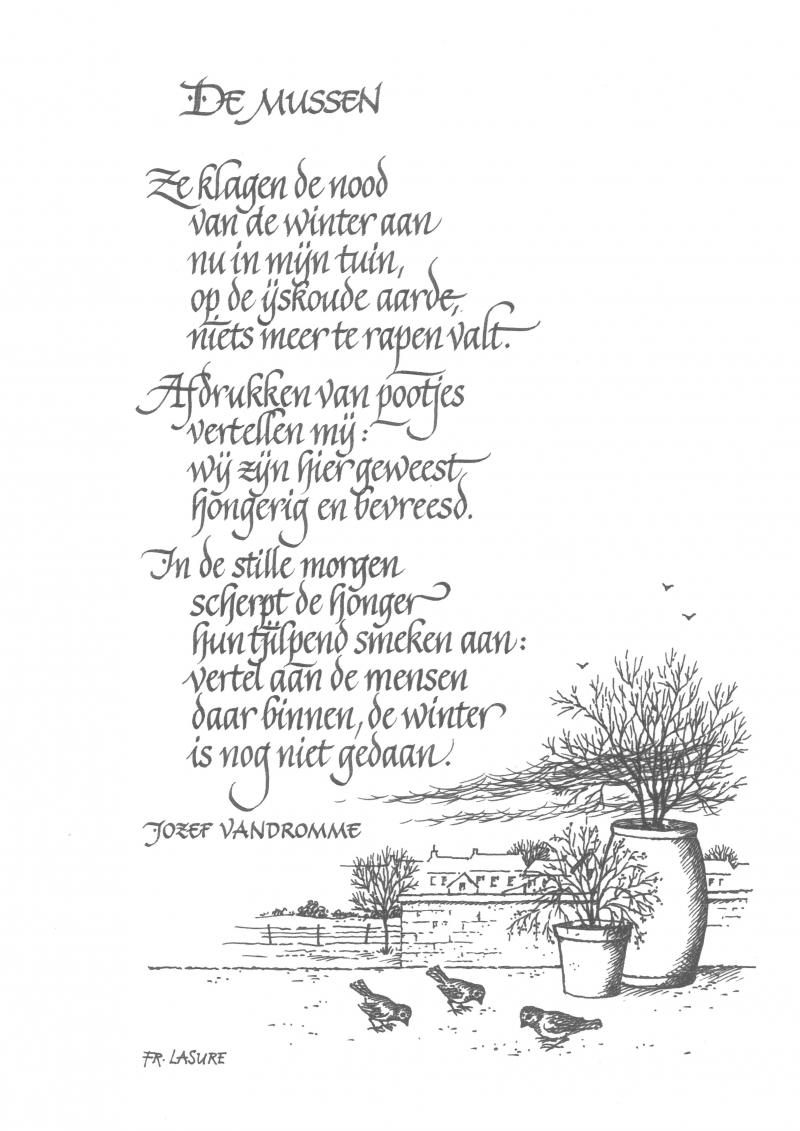 DE MUSSEN
Ze klagen de nood
van de winter aan
nu in mijn tuin,
op de ijskoude aarde,
niets meer te rapen valt.
Afdrukken van pootjes
vertellen mij:
wij zijn hier geweest
hongerig en bevreesd.
In de stille morgen
scherpt de honger
hun tjilpend smeken aan:
vertel aan de mensen
daar binnen, de winter
is nog niet gedaan.
JOZEF VANDROMME
FR. LASURE